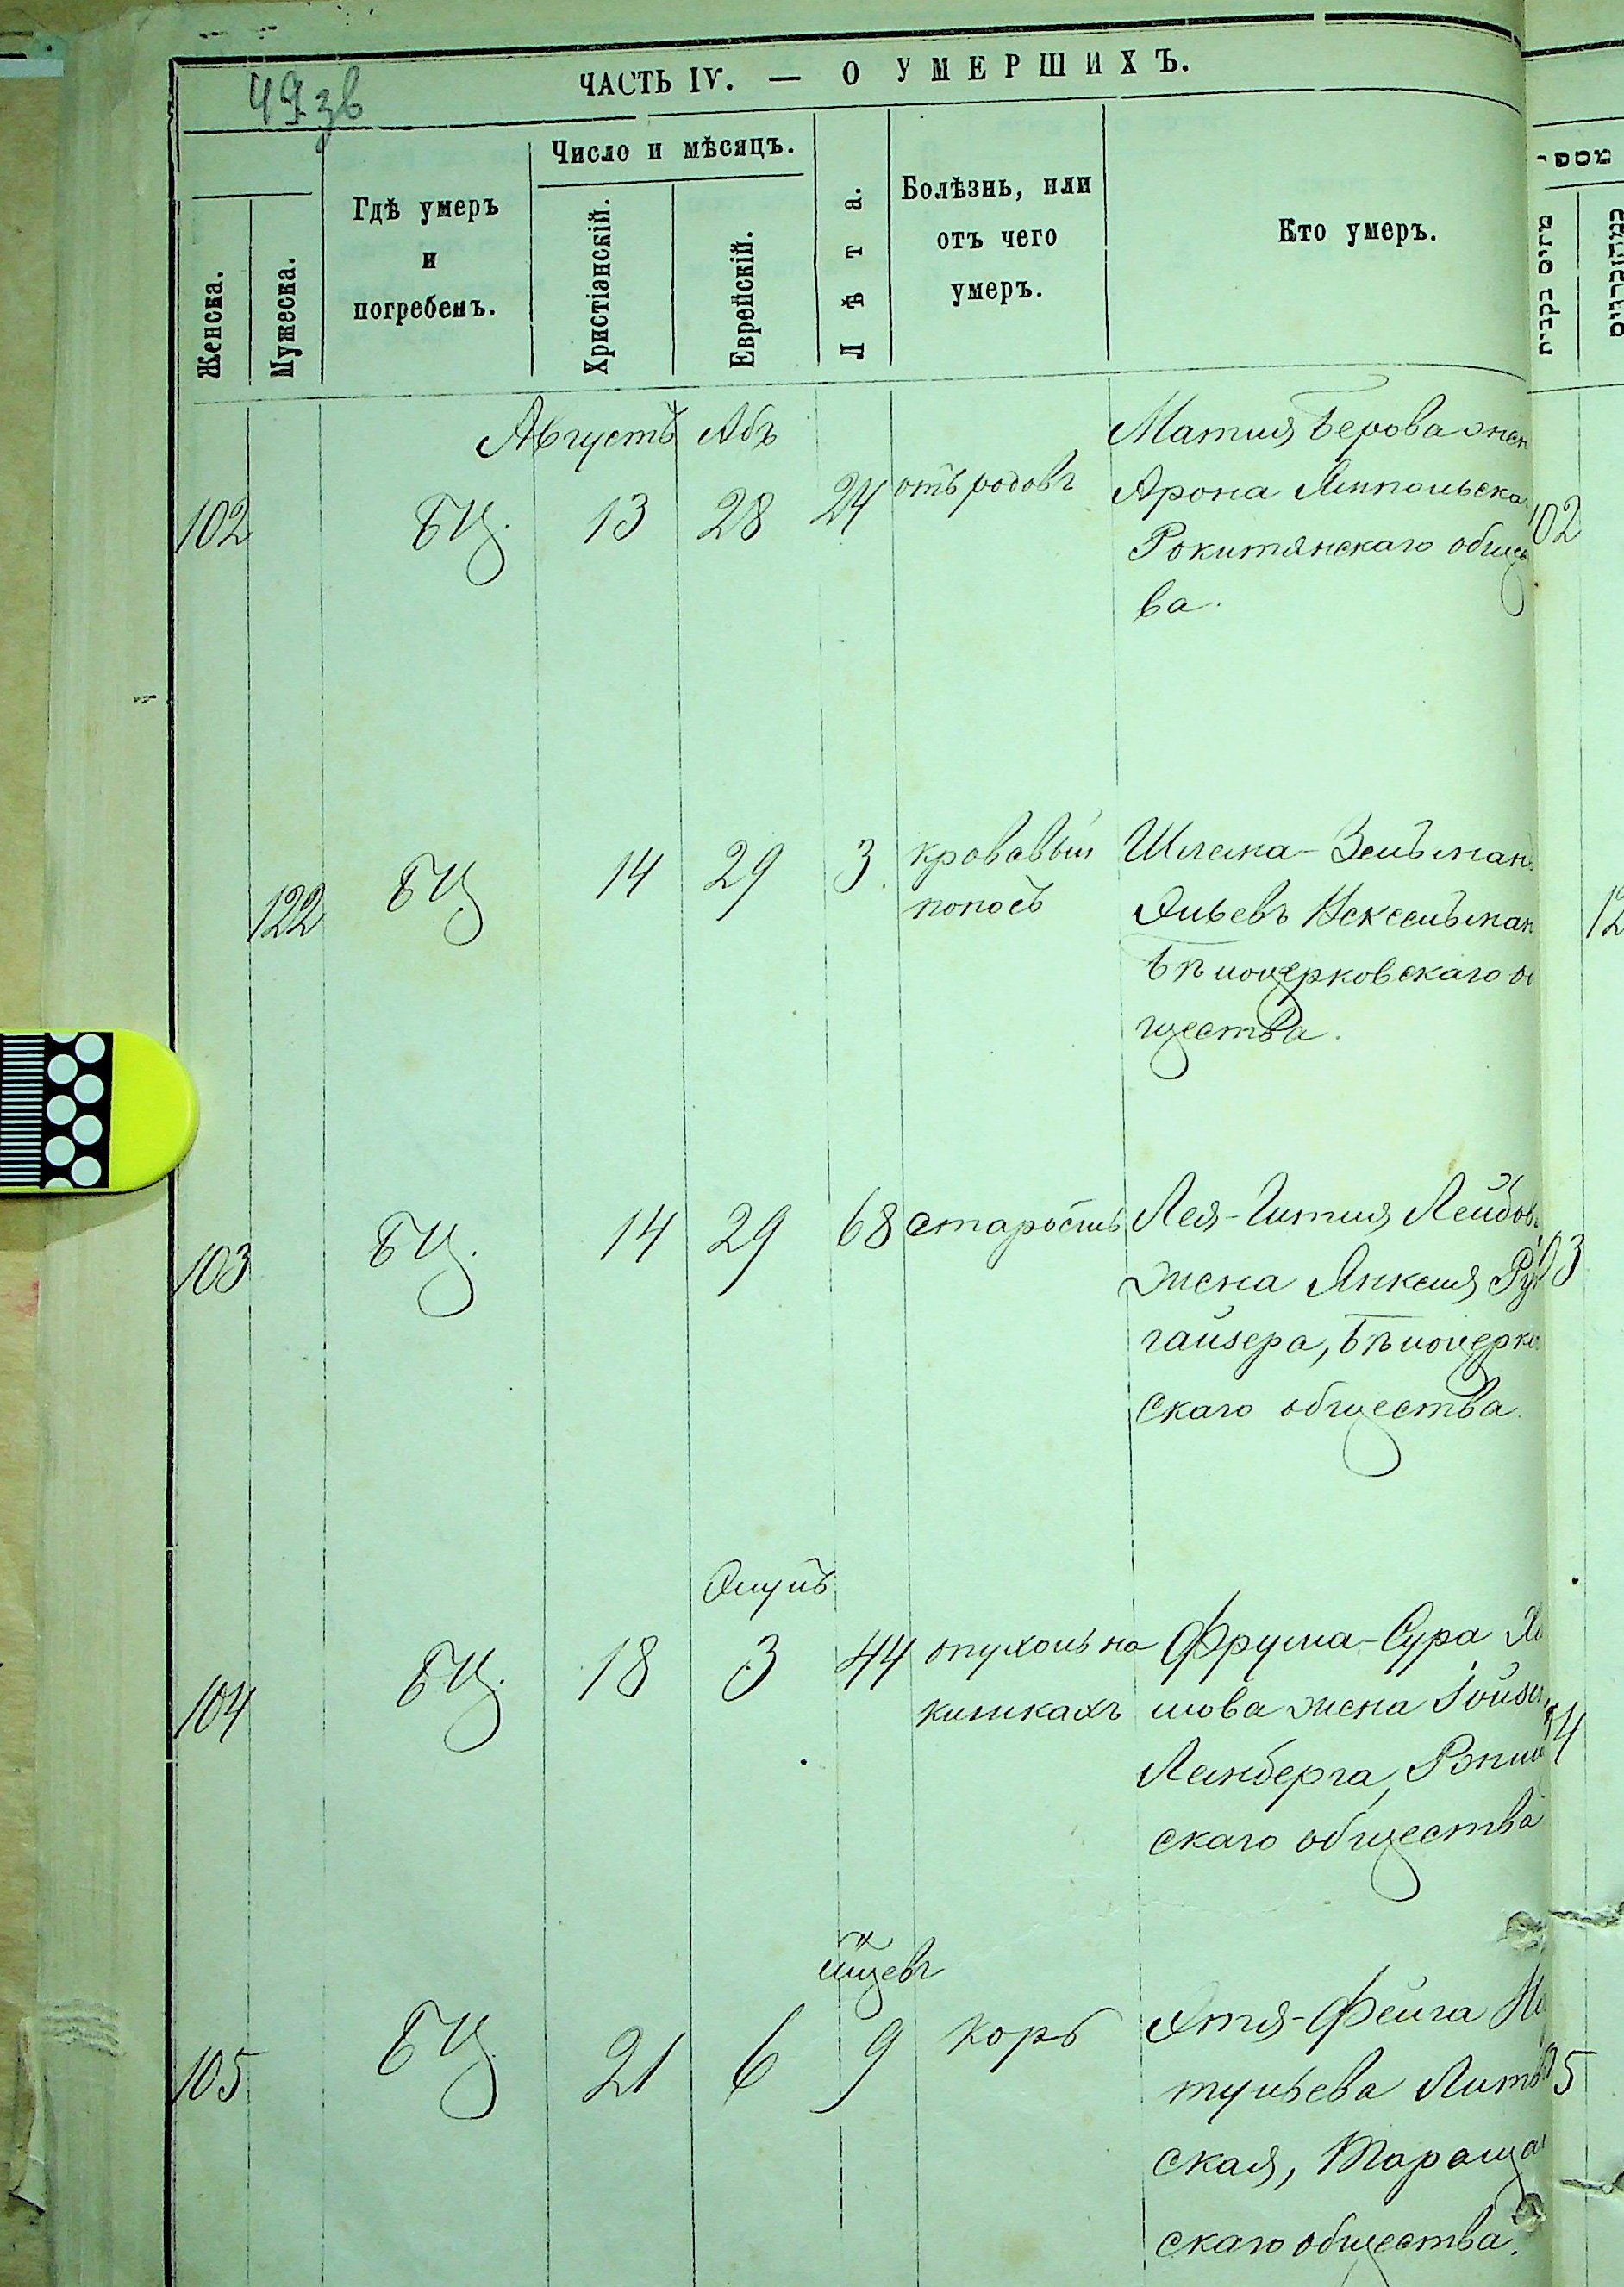 49 зв
ЧАСТЬ IV. — О УМЕРШИХЪ.
Женска.
Мужеска.
Гдѣ умеръ
и
погребенъ.
Число и мѣсяцъ.
Христіанскій.
Еврейскій.
Лѣта.
Болѣзнь, или
отъ чего
умеръ.
Кто умеръ.
מספר
Августъ Абъ
102 БЦ. 13 28 24 отъ родовъ
Матля Берова жен
Арона Липпольска
Рокитянскаго общес
ва.
102
122 БЦ 14 29 3 кровавый
поносъ
Шлема-Зельман
Эльевъ
Бѣлоцерковскаго об
щества.
12
103 БЦ. 14 29 68 старость
Лея-Гитля Лейбов
жена Янкеля Ру
гайзера, Бѣлоцерко
скаго общества.
03
Элулъ
104 БЦ. 18 3 44 опухоль на
кишкахъ
Фрума-Сура Ха
мова жена
Ленберга,
скаго общества
04
мѣсяцевъ
105 БЦ 21 6 9 корь
Этя-Фейга
тульева
ская, Тараща
скаго общества.
05